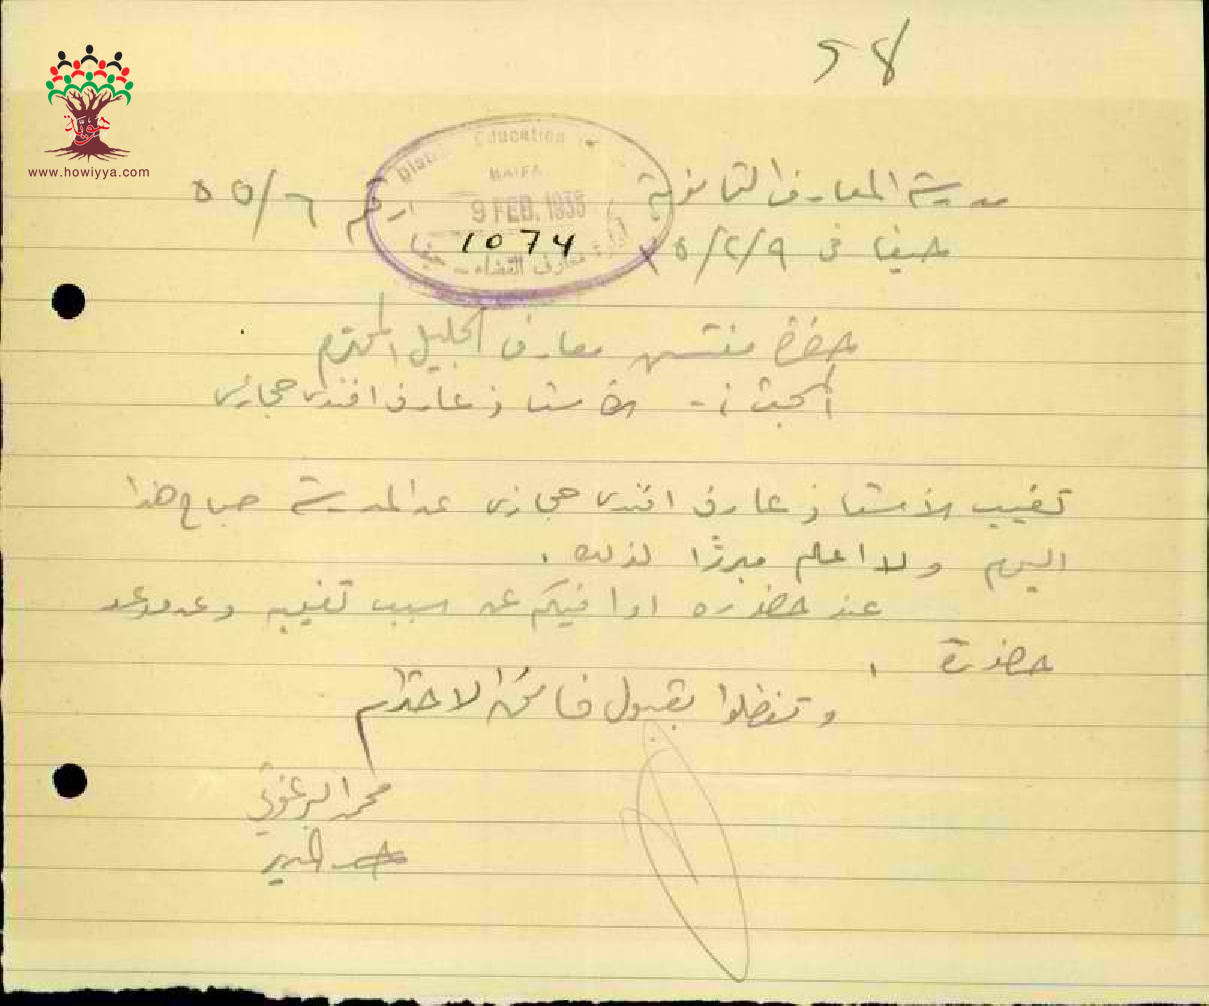 58
هوية
www.howiyya.com
District Education
HAIFA
9 FEB. 1935
1074
معارف القضاء - حيفا
مدرسة المعارف الثانوية
الرقم ٥٥/٦
حيفا في ٩/٢/٣٥
حضرة مفتش معارف الجليل المحترم
المبحث :- الأستاذ عارف افندي حجازي
تغيب الأستاذ عارف افندي حجازي عن المدرسة صباح هذا
اليوم ولا اعلم مبررًا لذلك .
عند حضوره اوافيكم عن سبب تغيبه وعن موعد
حضوره .
وتفضلوا بقبول فائق الاحترام
محمد البرغوثي
المدير